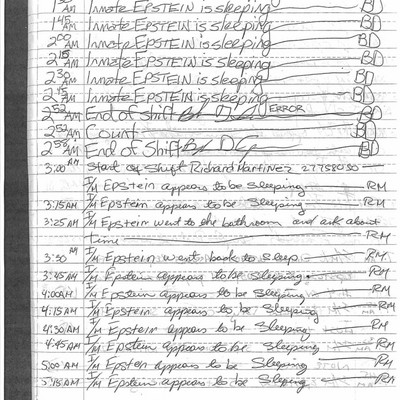 1 AM Inmate EPSTEIN is sleeping BD
1:45 AM Inmate EPSTEIN is sleeping BD
2:00 AM Inmate EPSTEIN is sleeping BD
2:15 AM Inmate EPSTEIN is sleeping BD
2:30 AM Inmate EPSTEIN is sleeping BD
2:45 AM Inmate EPSTEIN is sleeping BD
2:52 AM End of shift ERROR BD
2:52 AM Count BD
2:58 AM End of Shift BD
3:00 AM Start of Shift Richard Martinez
I/M Epstein appears to be sleeping RM
3:15AM I/M Epstein appears to be sleeping RM
3:25AM I/M Epstein went to the bathroom and ask about
time RM
3:30 AM I/M Epstein went back to sleep RM
3:45AM I/M Epstein appears to be sleeping RM
4:00AM I/M Epstein appears to be sleeping RM
4:15AM I/M Epstein appears to be sleeping RM
4:30AM I/M Epstein appears to be sleeping RM
4:45AM I/M Epstein appears to be sleeping RM
5:00AM I/M Epsten appears to be Sleeping RM
5:15AM I/M Epstein appears to be Sleeping RM